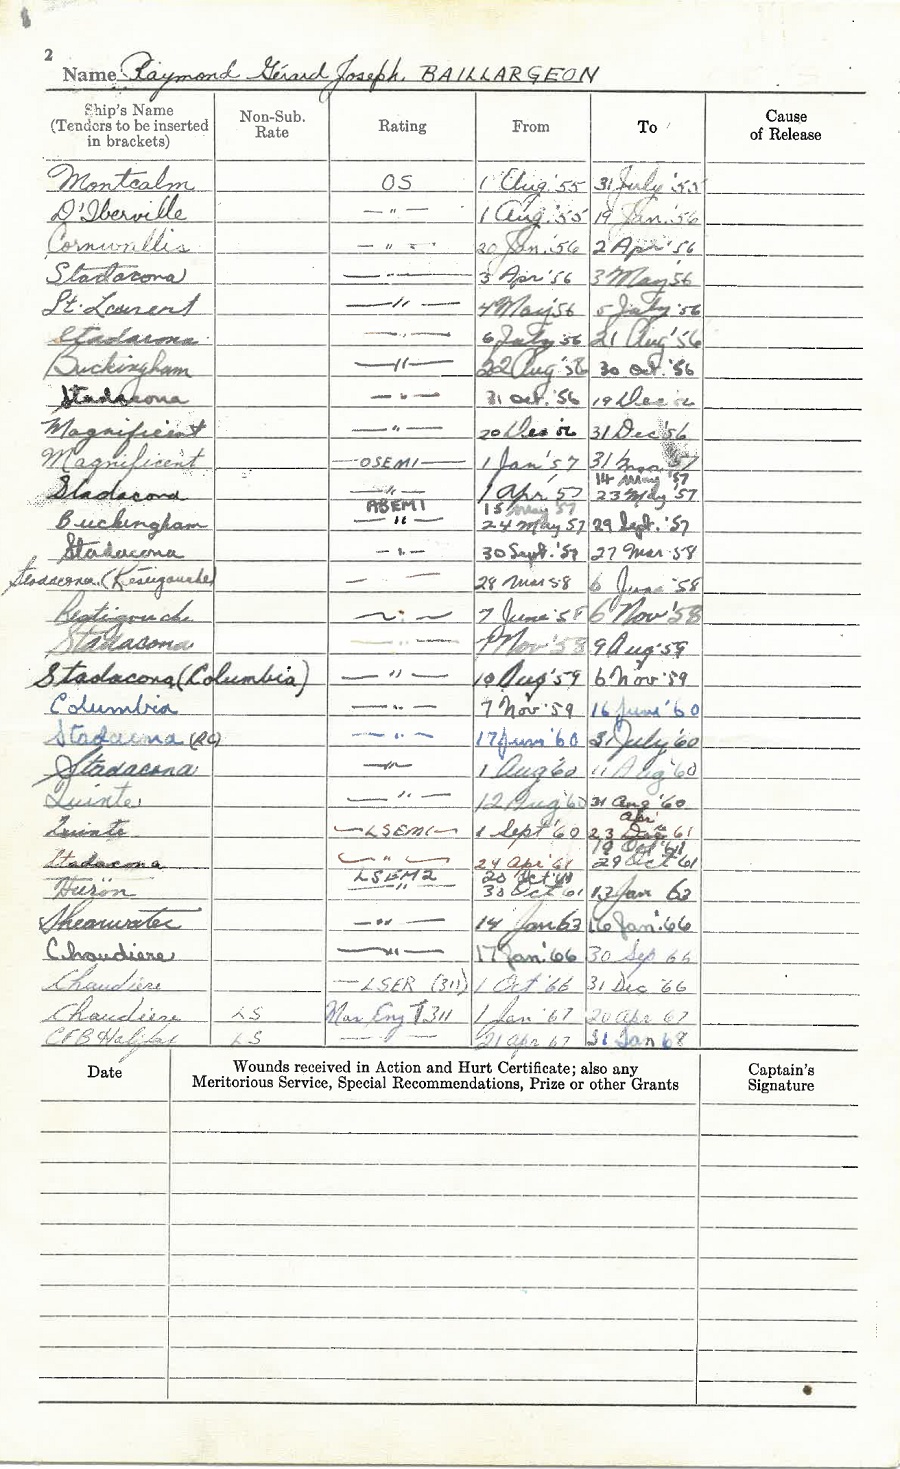 2
Name Raymond Gérard Joseph. BAILLARGEON
Ship's Name (Tenders to be inserted in brackets) Non-Sub. Rate Rating From To Cause of Release
Montcalm OS 1 Aug '55 31 July '55
D'Iberville — " — 1 Aug. '55 19 Jan. '56
Cornwallis — " — 20 Jan. '56 2 Apr '56
Stadacona — — 3 Apr '56 3 May '56
St. Laurent — " — 4 May '56 5 July '56
Stadacona — " — 6 July '56 21 Aug '56
Buckingham — " — 22 Aug '56 30 Oct. '56
Stadacona — " — 31 Oct. '56 19 Dec 56
Magnificent — " — 20 Dec 56 31 Dec '56
Magnificent —OSEM1— 1 Jan '57 31 Mar '57
14 May '57
Stadacona — " — 1 Apr '57 23 May '57
ABEM1 15 May 57
Buckingham — " — 24 May 57 29 Sept. '57
Stadacona — " — 30 Sept. '57 27 Mar 58
Stadacona (Restigouche) — — 28 Mar 58 6 June '58
Restigouche — " — 7 June '58 6 Nov '58
Stadacona — " — 7 Nov '58 9 Aug '59
Stadacona (Columbia) — " — 10 Aug '59 6 Nov '59
Columbia — " — 7 Nov '59 16 June '60
Stadacona (RC) — " — 17 June '60 31 July '60
Stadacona — " — 1 Aug 60 11 Aug '60
Quinte — " — 12 Aug '60 31 Aug '60
Apr
Quinte —LSEM1— 1 Sept '60 23 Dec 61
19 Oct '61
Stadacona — " — 24 Apr '61 29 Oct '61
LSEM2 20 Oct '61
Huron — " — 30 Oct 61 13 Jan 63
Shearwater — " — 14 Jan 63 16 Jan. '66
Chaudiere — " — 17 Jan. '66 30 Sep 66
Chaudiere —LSER (311) 1 Oct '66 31 Dec '66
Chaudiere LS Mar Eng T 311 1 Jan '67 20 Apr 67
CFB Halifax LS — — 21 Apr 67 31 Jan 68
Date Wounds received in Action and Hurt Certificate; also any Meritorious Service, Special Recommendations, Prize or other Grants Captain's Signature